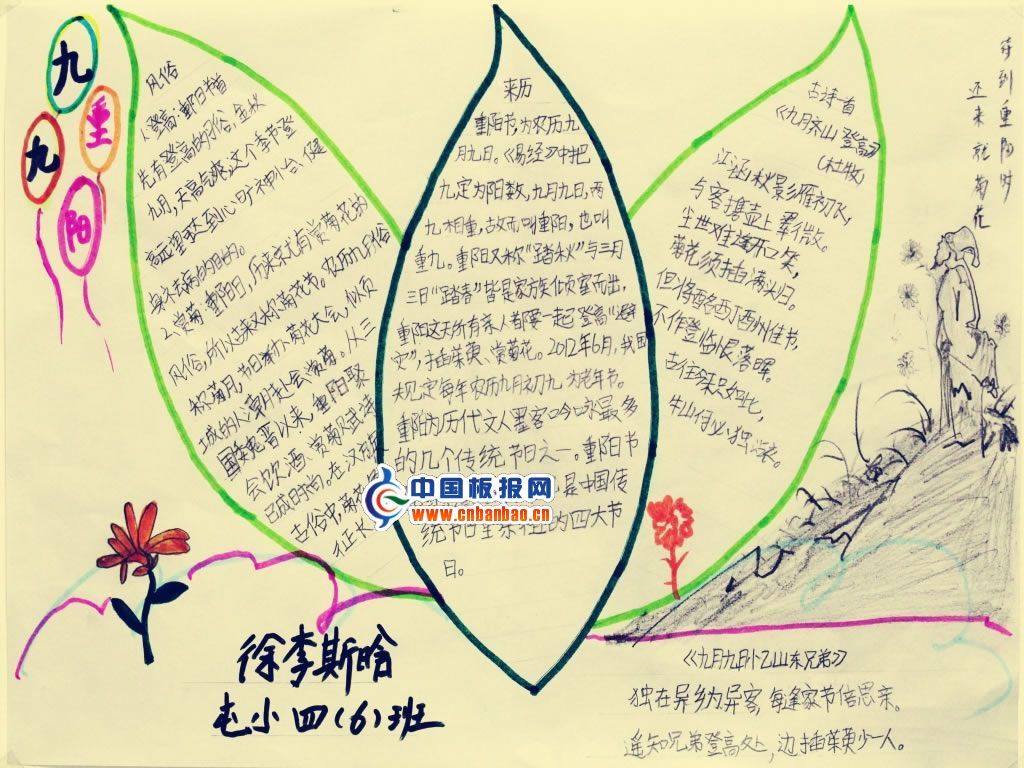 九
九
重
阳
风俗
1.登高:重阳节首
先有登高的习俗,金秋
九月,天高气爽,这个季节登
高远望可达到心旷神怡、健
身祛病的目的。
2.赏菊 重阳日,历来就有赏菊花的
风俗,所以过来又称菊花节。农历九月俗
称菊月,节日举办菊花大会,倾
城的人潮赴会赏菊。从三
国魏晋以来,重阳聚
会饮酒、赏菊赋诗
已成时尚。在汉族
古俗中,菊花
征长
来历
重阳节,为农历九
月九日。《易经》中把
九定为阳数,九月九日,两
九相重,故而叫重阳,也叫
重九。重阳又称“踏秋”与三月
三日“踏春”皆是家族倾室而出,
重阳这天所有亲人都要一起登高“避
灾”,插茱萸、赏菊花。2012年6月,我国
规定每年农历九月初九为老年节。
重阳为历代文人墨客吟咏最多
的几个传统节日之一。重阳节
是中国传
统节日里祭祖的四大节
日。
古诗一首
《九月齐山登高》
(杜牧)
江涵秋影雁初飞,
与客携壶上翠微。
尘世难逢开口笑,
菊花须插满头归。
但将酩酊酬佳节,
不作登临恨落晖。
古往今来只如此,
牛山何必独沾衣。
待到重阳时
还来就菊花
中国板报网
www.cnbanbao.cn
徐李斯晗
屯小四(6)班
《九月九日忆山东兄弟》
独在异乡为异客,每逢家节倍思亲。
遥知兄弟登高处,边插茱萸少一人。